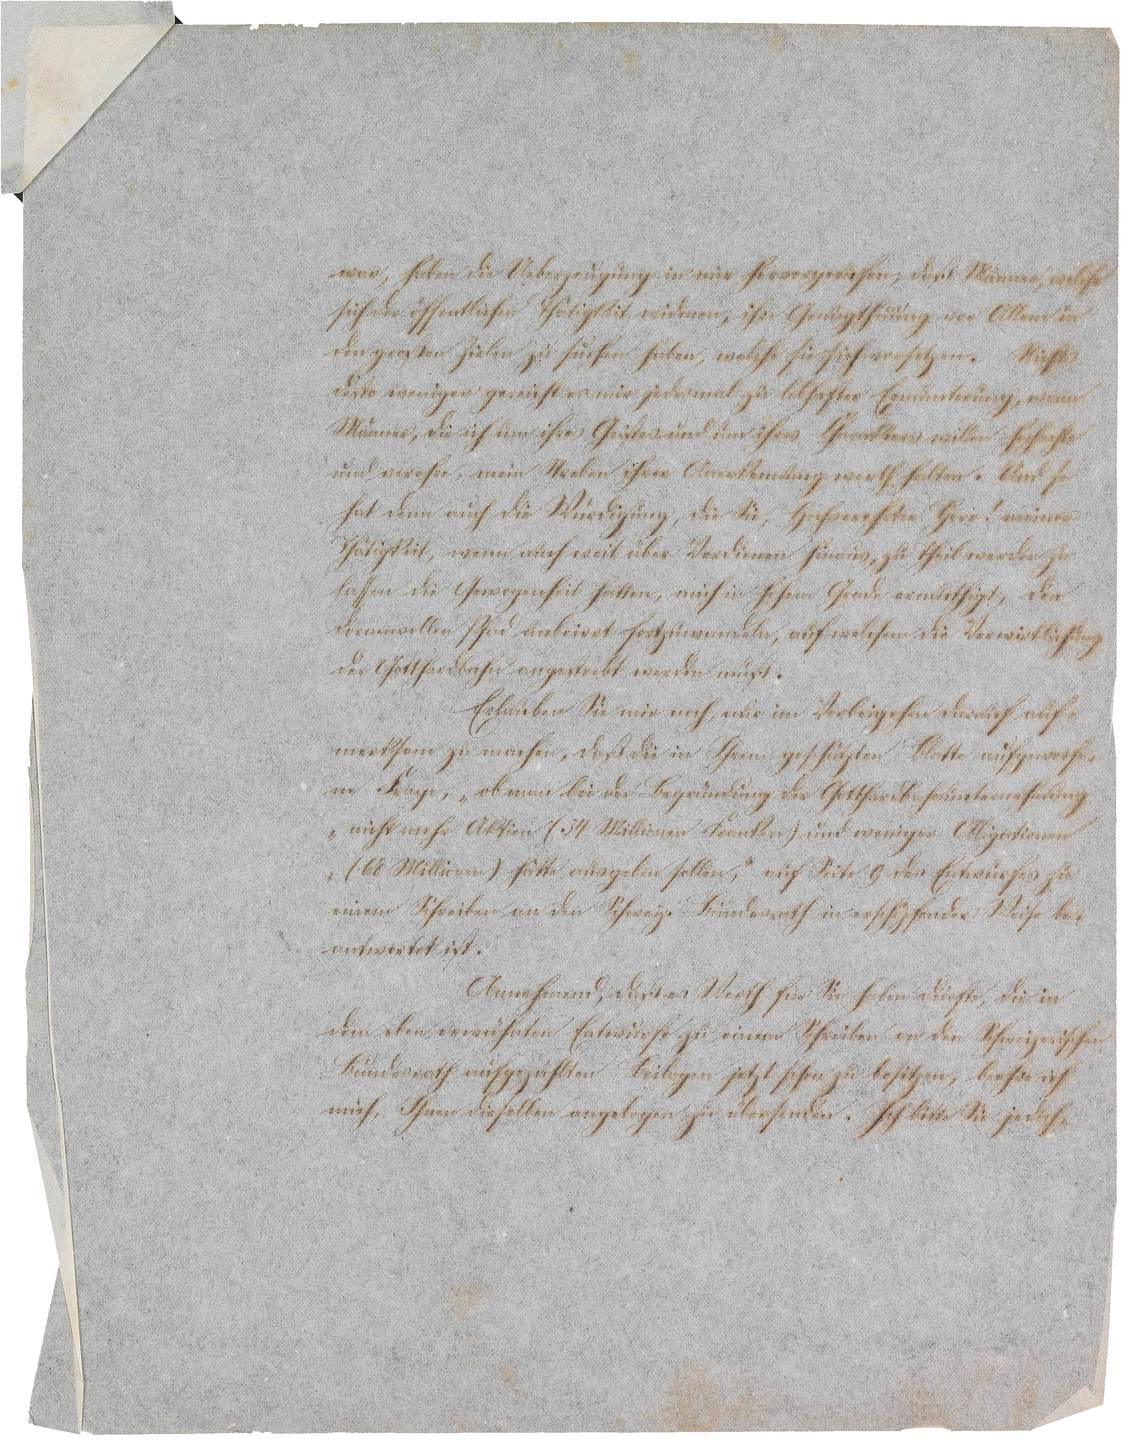 war, haben die Ueberzeugung in mir hervorgerufen, daß Männer, welche
sich der öffentlichen Thätigkeit widmen, ihre Genugthuung vor Allem in
den großen Zielen zu suchen haben, welche sie sich vorsetzen. Nichts
desto weniger gereicht es mir jedesmal zu lebhafter Ermunterung, wenn
Männer, die ich um ihres Geistes und um ihres Charakters willen hochachte
und verehre, mein Streben ihrer Anerkennung werth halten. Und so
hat denn auch die Würdigung, die Sie, Hochverehrter Herr! meiner
Thätigkeit, wenn auch weit über Verdienen hinaus, zu Theil werden zu
lassen die Gewogenheit hatten, mich in hohem Grade ermuthigt, den
dornenvollen Pfad unbeirrt fortzuwandeln, auf welchem die Verwirklichung
der Gotthardbahn angestrebt werden muß.
Erlauben Sie mir noch, nur im Vorbeigehen darauf auf-
merksam zu machen, daß die in Ihrem geschätzten Blatte aufgeworfe-
ne Frage, „ob man bei der Begründung der Gotthardbahnunternehmung
„nicht mehr Aktien (34 Millionen Franken) und weniger Obligationen
„(68 Millionen) hätte ausgeben sollen," auf Seite 9 des Entwurfes zu
einem Schreiben an den Schweiz. Bundesrath in erschöpfender Weise be-
antwortet ist.
Annehmend, daß es Werth für Sie haben dürfte, die in
dem eben erwähnten Entwurfe zu einem Schreiben an den Schweizerischen
Bundesrath aufgezählten Beilagen jetzt schon zu besitzen, beehre ich
mich, Ihnen dieselben angebogen zu übersenden. Ich bitte Sie jedoch,